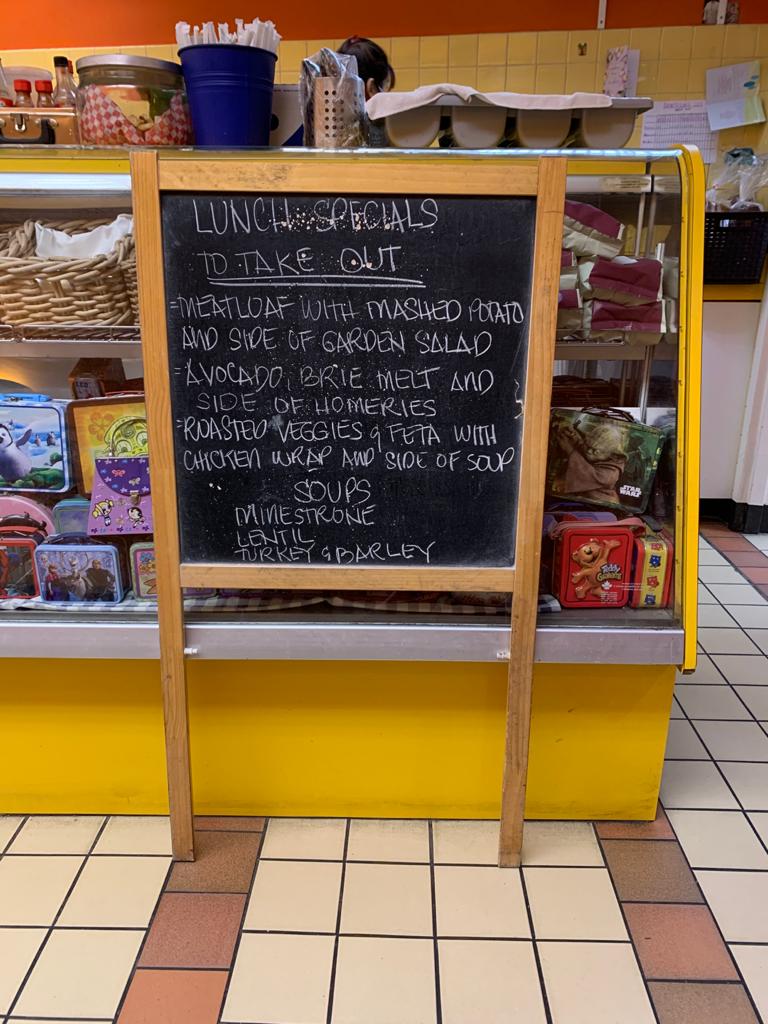 LUNCH SPECIALS
TO TAKE OUT
=MEATLOAF WITH MASHED POTATO
AND SIDE OF GARDEN SALAD
=AVOCADO, BRIE MELT AND
SIDE OF HOMERIES
=ROASTED VEGGIES & FETA WITH
CHICKEN WRAP AND SIDE OF SOUP
SOUPS
MINESTRONE
LENTIL
TURKEY & BARLEY
STAR
WARS
Teddy
Grahams